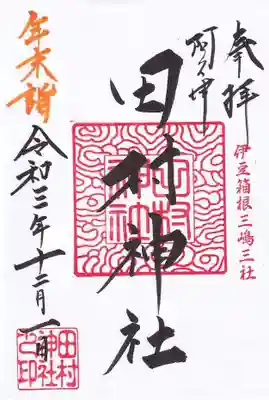 奉拝
伊豆箱根三嶋三社
阿久津
田村神社
田村
神社
年末詣
令和三年十二月一日
田村
神社
之印